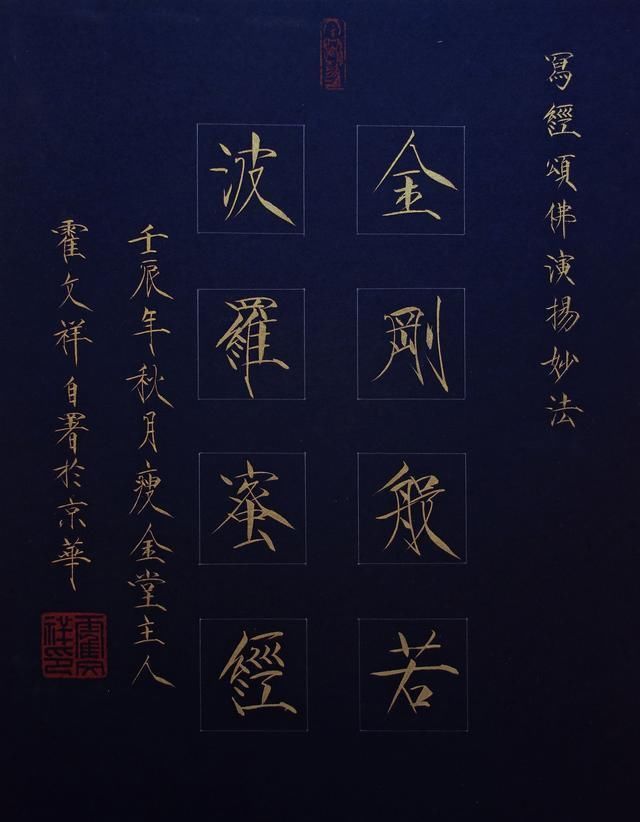 寫經頌佛演揚妙法
金剛般若
波羅蜜經
壬辰年秋月瘦金堂主人
霍文祥自署於京華
霍文祥印